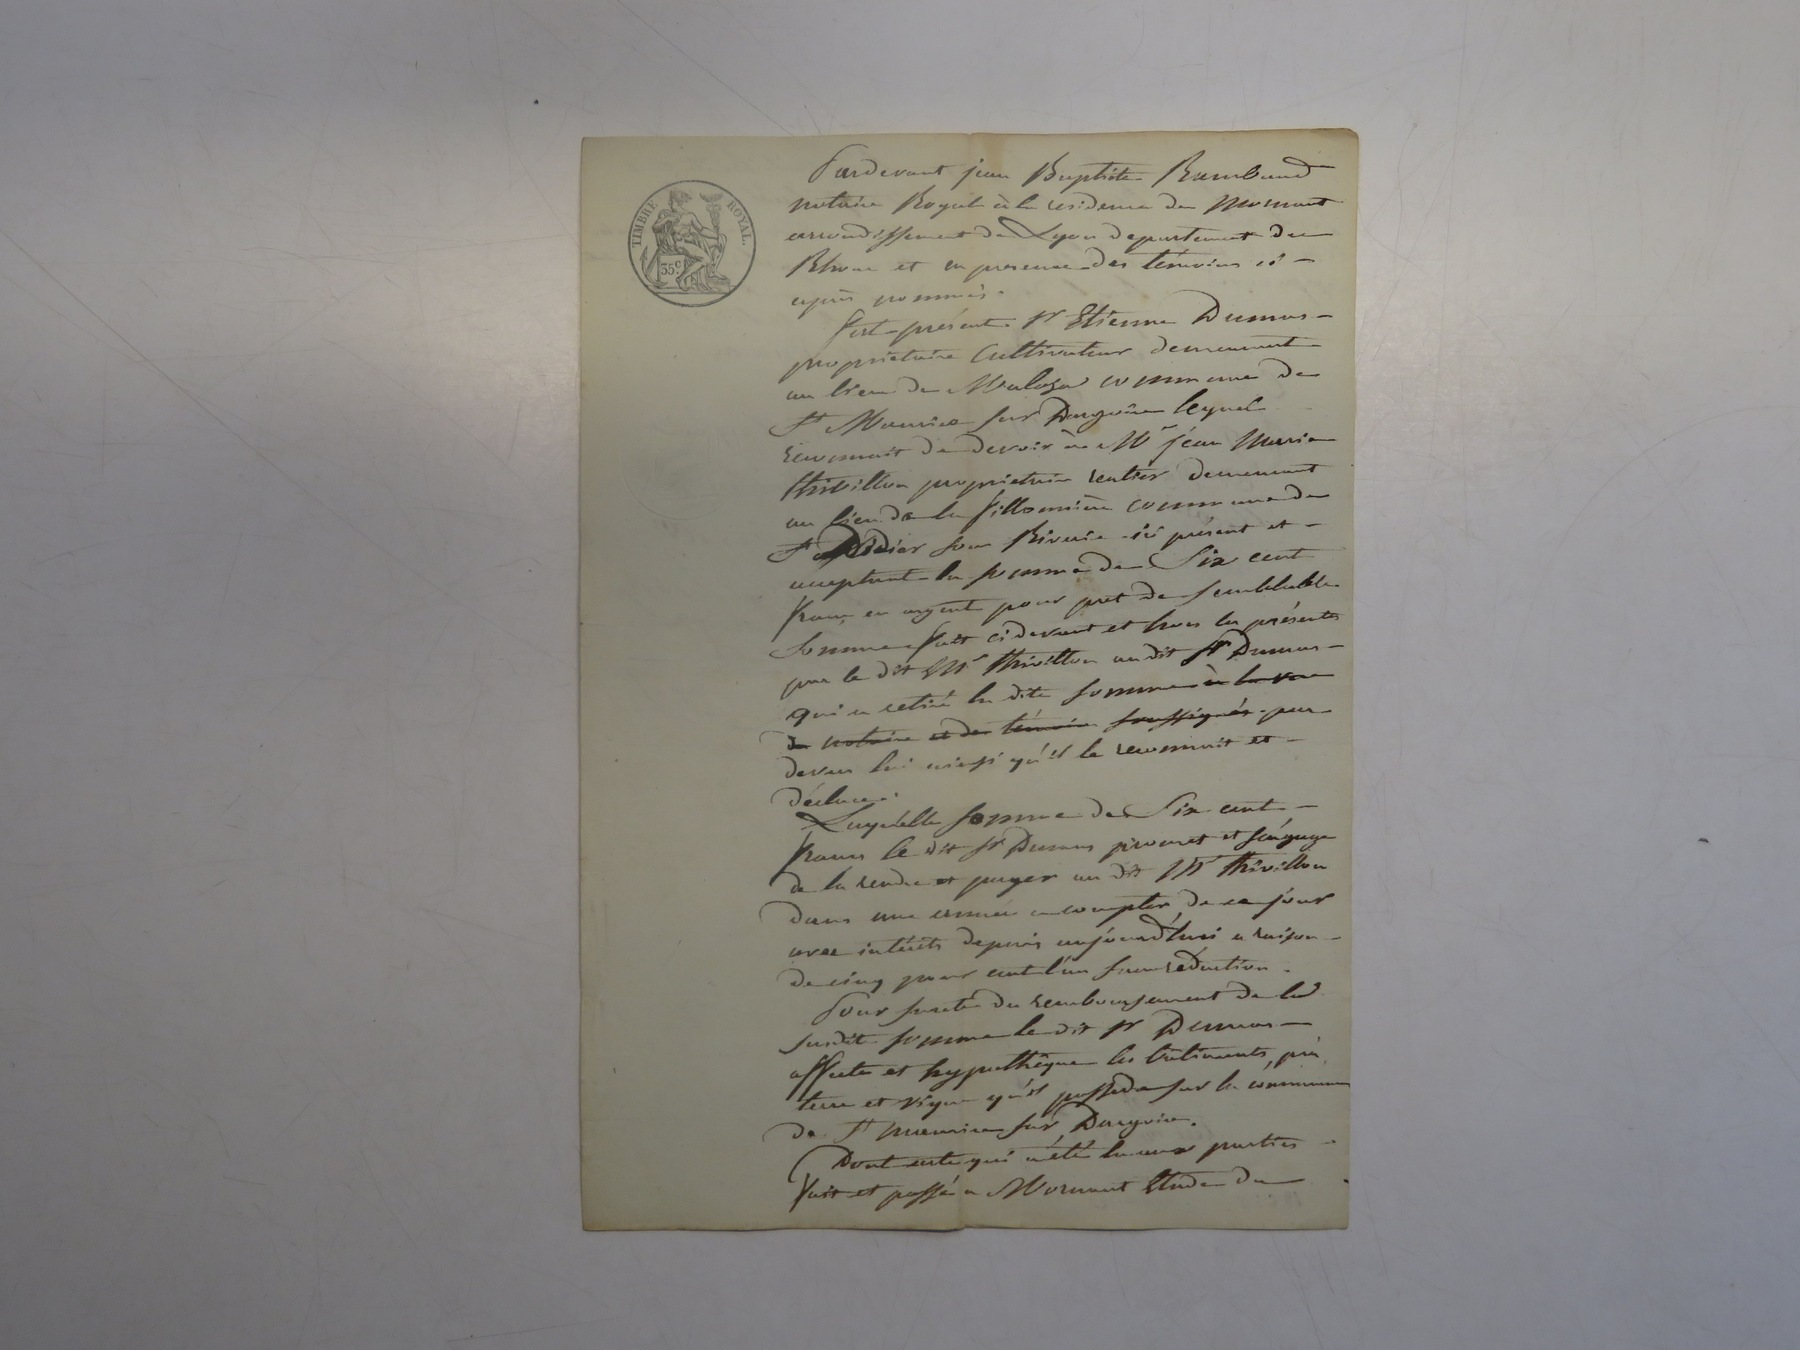 TIMBRE ROYAL.
35c
Pardevant jean Baptiste Rambaud
notaire Royal à la residence de Mornant
arrondissement de Lyon departement du
Rhone et en presence des témoins ci-
après nommés.
Fut présent Sr Etienne Dumas
propriétaire Cultivateur demeurant
au lieu de commune de
St Maurice sur Dargoire lequel
reconnait de devoir à Mr jean Marie
thivillon propriétaire rentier demeurant
au lieu de la fillonnière commune de
St Didier sous Riverie ici présent et
acceptant la somme de Six cent
francs en argent pour pret de semblable
Somme fait ci devant et hors les présentes
par le dit Mr thivillon au dit Sr Dumas
qui a retiré la dite somme à la vue
de notaire et des témoins soussignés par
devers lui ainsi qu'il le reconnait et
déclare.
Laquelle somme de Six cent
francs le dit Sr Dumas promet et s'engage
de la rendre et payer au dit Mr thivillon
dans une année a compter de ce jour
avec intérêts depuis aujourd'hui a raison
de cinq pour cent l'an sans réduction.
Pour sureté du remboursement de la
susdite somme le dit Sr Dumas
affecte et hypothèque les bâtiments, pré
terre et vigne qu'il possède sur la commune
de St maurice sur Dargoire.
Dont acte qui a été lu aux parties
fait et passé a Mornant Etude du